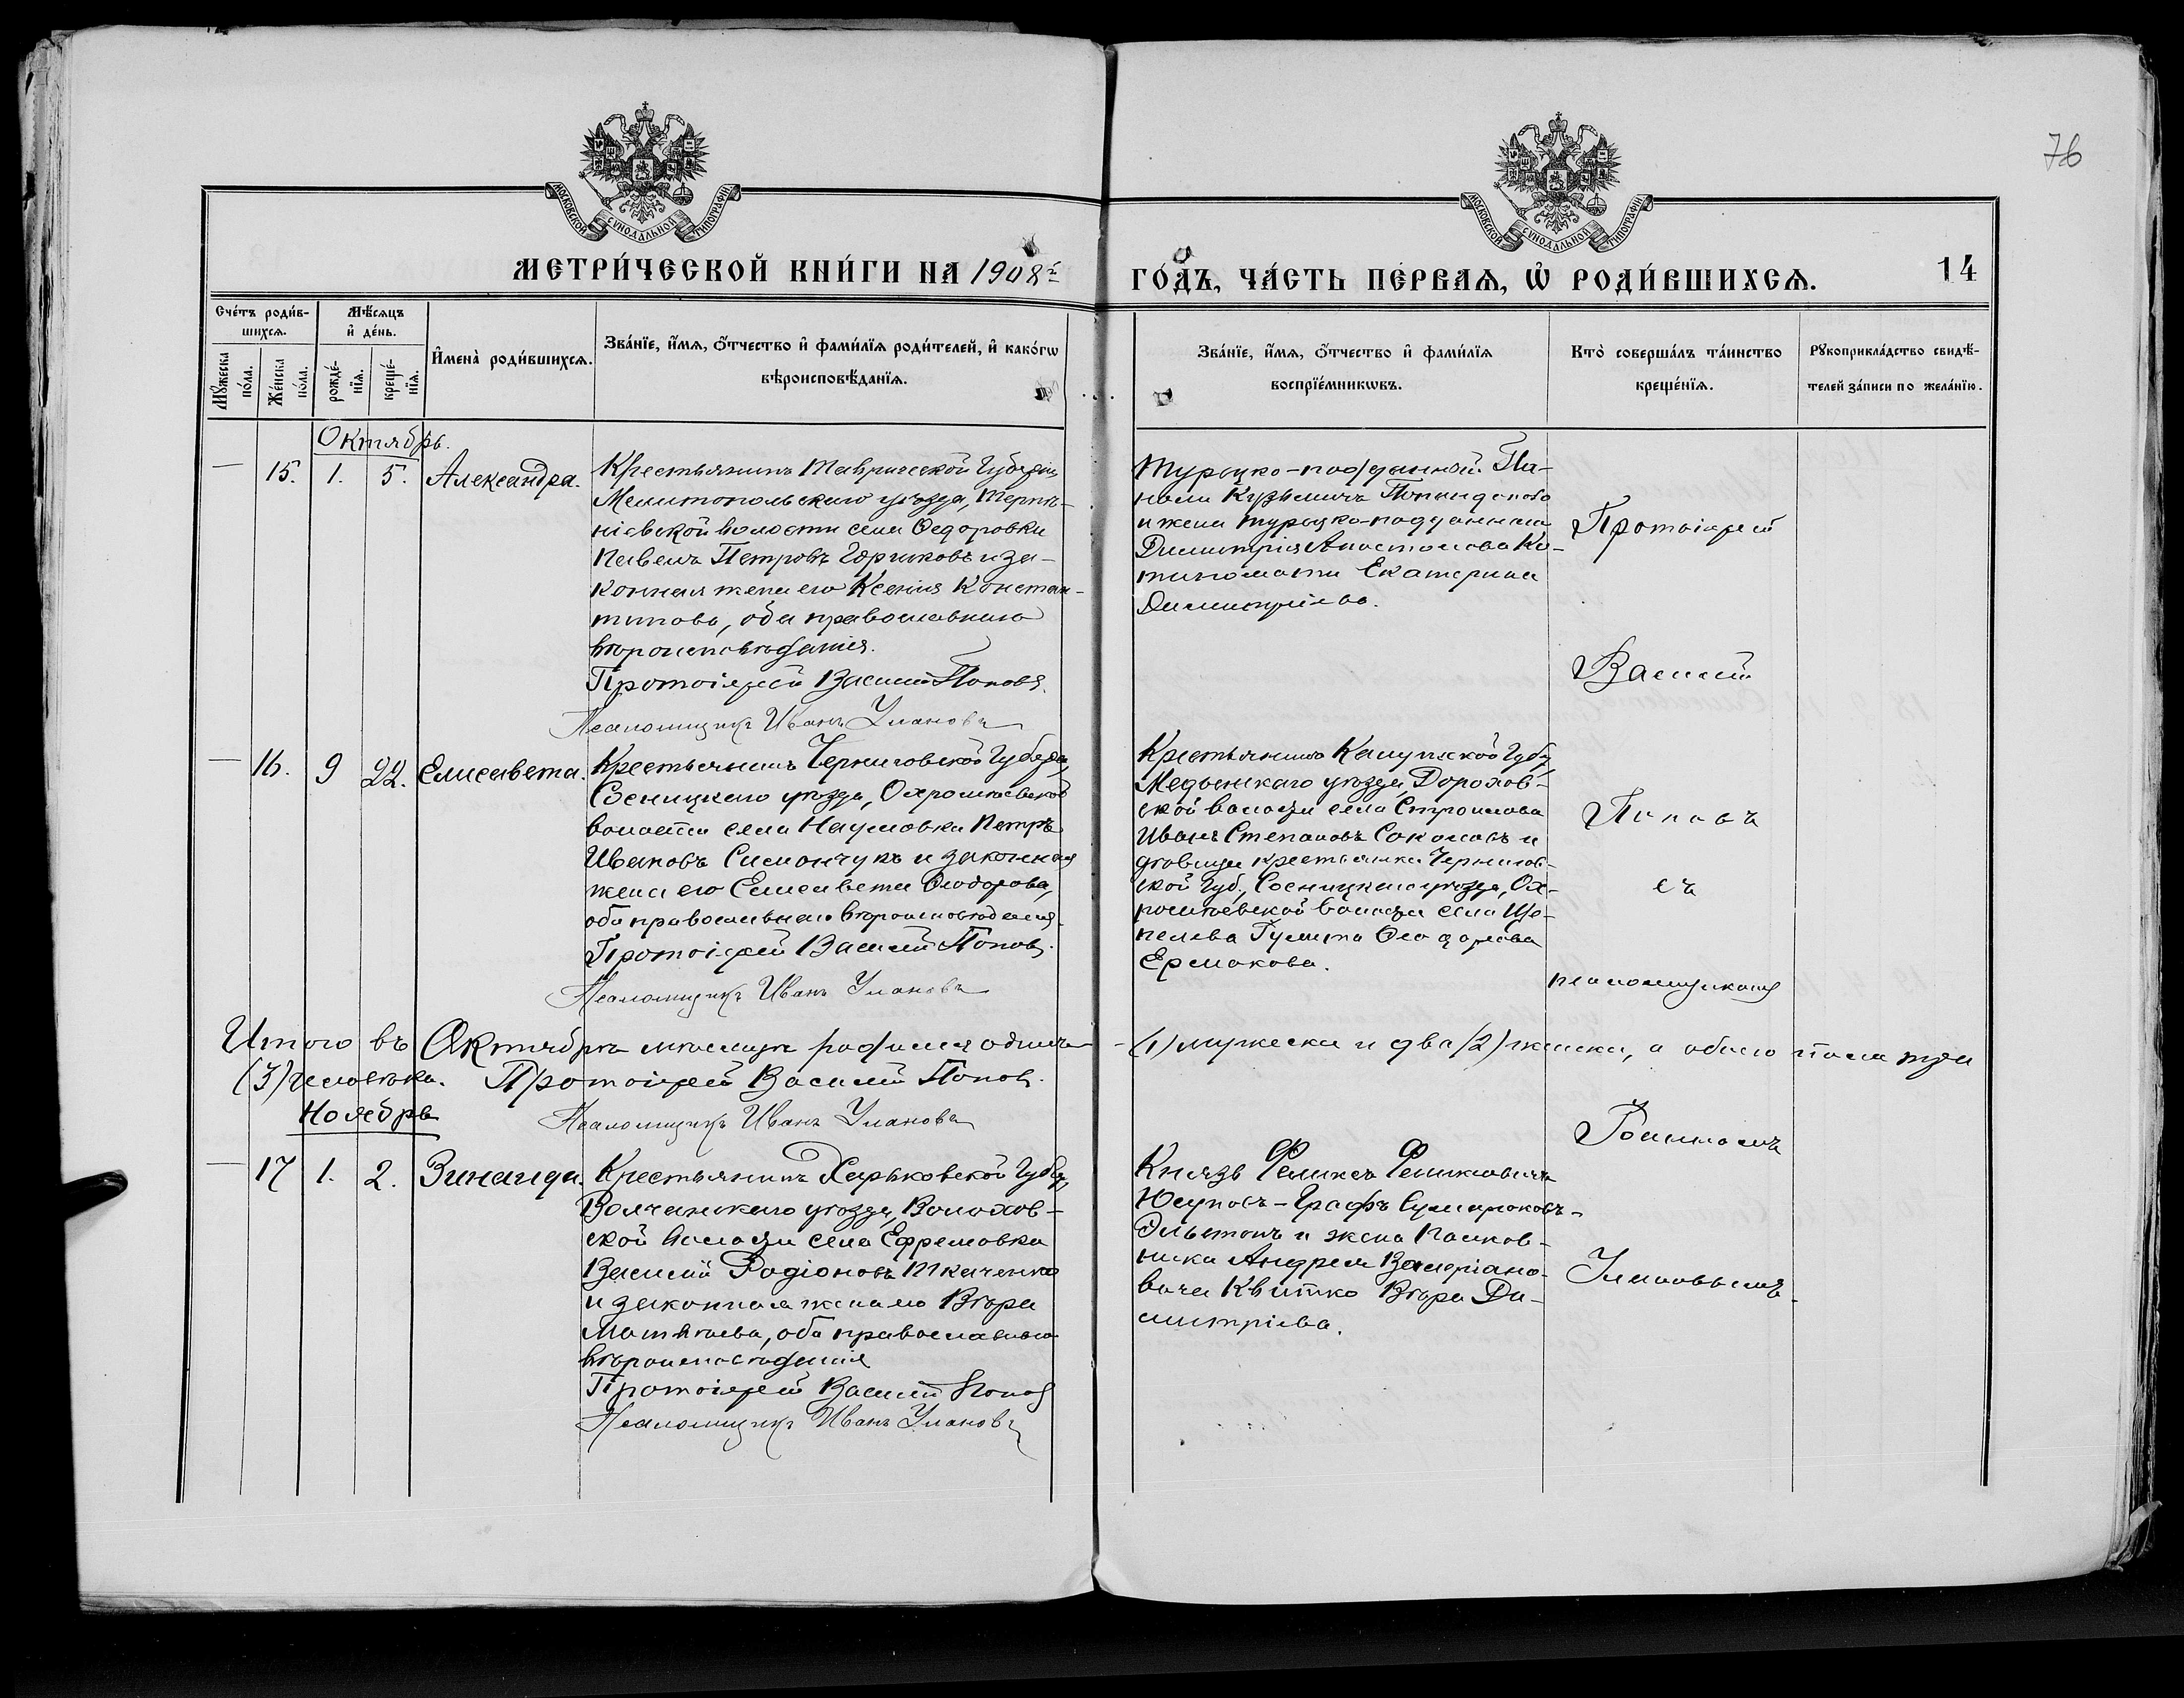 76
МОСКОВСКОЙ СѴНОДАЛЬНОЙ ТИПОГРАФІИ
МОСКОВСКОЙ СѴНОДАЛЬНОЙ ТИПОГРАФІИ
МЕТРИ́ЧЕСКОЙ КНИ́ГИ НА 1908й ГО́ДЪ, ЧА́СТЬ ПЕ́РВАѦ, Ѡ РОДИ́ВШИХСѦ.
14
Сче́тъ роди́в-
шихсѧ.
Мꙋ́жеска по́ла.
Же́нска по́ла.
Мѣ́сѧцъ
и де́нь.
рожде́-
нїѧ.
креще́-
нїѧ.
И҆мена̀ роди́вшихсѧ.
Зва́нїе, и҆́мѧ, ѻ҆́тчество и҆ фами́лїѧ роди́телей, и҆ како́гѡ
вѣроисповѣ́данїѧ.
Зва́нїе, и҆́мѧ, ѻ҆́тчество и҆ фами́лїѧ
воспрїе́мникѡвъ.
Кто̀ соверша́лъ та́инство
креще́нїѧ.
Рꙋкоприкла́дство свидѣ́-
телей за́писи по жела́нїю.
Октябрь.
— 15. 1. 5. Александра.
Крестьянинъ Таврической Губерніи,
Мелитопольскаго уѣзда, Терпѣ-
ніевской волости села Ѳедоровки
Павелъ Петровъ Гориковъ и за-
конная жена его Ксенія Констан-
тинова, оба православнаго
вѣроисповѣданія.
Протоіерей Василій Поповъ.
Псаломщикъ Иванъ Улановъ
Турецко-подданной Па-
нали Кузьмичъ
и жена турецко-подданнаго
Димитрія Апостолова Ка-
Екатерина
Димитріева.
Протоіерей
Василій
Поповъ
съ
псаломщикомъ
Іоанномъ
Улановымъ.
— 16. 9 22. Елисавета.
Крестьянинъ Черниговской Губерніи,
Сосницкаго уѣзда, Охромѣевской
волости села Наумовки Петръ
Ивановъ Симончукъ и законная
жена его Елисавета Ѳеодорова,
оба православнаго вѣроисповѣданія.
Протоіерей Василій Поповъ.
Псаломщикъ Иванъ Улановъ
Крестьянинъ Калужской Губ.,
Медынскаго уѣзда, Дорохов-
ской волости села Строилова
Иванъ Степановъ Соколовъ и
дѣвица крестьянка Чернигов-
ской Губ., Сосницкаго уѣзда, Ох-
ромѣевской волости села Ще-
Ѳеодорова
Ермакова.
Итого въ Октябрѣ мѣсяцѣ родился одинъ — (1) мужеска и два (2) женска, а обоего пола три
(3) человѣка. Протоіерей Василій Поповъ.
Псаломщикъ Иванъ Улановъ
Ноябрь
— 17 1. 2. Зинаида.
Крестьянинъ Харьковской Губ.,
Волчанскаго уѣзда, Волохов-
ской волости села Ефремовки
Василій Родіоновъ Ткаченко
и законная жена его Вѣра
Матвѣева, оба православнаго
вѣроисповѣданія
Протоіерей Василій Поповъ
Псаломщикъ Иванъ Улановъ
Князь Феликсъ Феликсовичъ
Юсуповъ-Графъ Сумароковъ-
Эльстонъ и жена Полков-
ника Андрея Валеріано-
вича Квитко Вѣра Ди-
митріева.